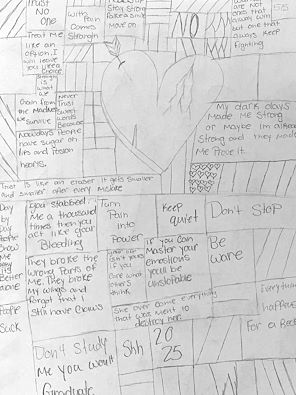 Trust
NO
One
with
Pain
Comes
Strength
Stay Strong
Fake a smile
Move on
NO
Are Not
ones that
always win
but one that
always keep
fighting
15/5
Treat Me
like an
option, I
will leave
you like a
choice
Strength
is
what
we
Gain from
the Madness
we
Survive
Never
Trust
sweet
words
Because
Nowadays People
have sugar on
lips and Poison
hearts.
My dark days
Made Me Strong
or Maybe I'm already
Strong and they made
Me Prove it.
is like an eraser it gets smaller
and smaller after every Mistake
Day
by
Day
People
Show
Me
Better
alone
People
Suck
You stabbed
Me a thousand
times then you
act like your
Bleeding
Turn
Pain
into
Power
Keep
quiet
Don't Stop
They broke the
Wrong Parts of
Me. They broke
My wings and
forgot that I
Still have Claws
your life
isn't yours
if you
care what
others
think
if you Can
Master your
emotions
you'll be
unstoppable
Be
ware
She over came everything
that was ment to
destroy her
Everything
happens
For a Reason
Don't Study
Me you won't
Graduate
Shh
20
25